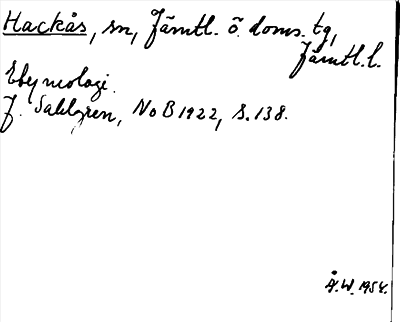 Hackås, sn, Jämtl. ö. doms. tg,
Jämtl. l.
Etymologi.
J. Sahlgren, NoB 1922, s. 138.
Å.W. 1954.